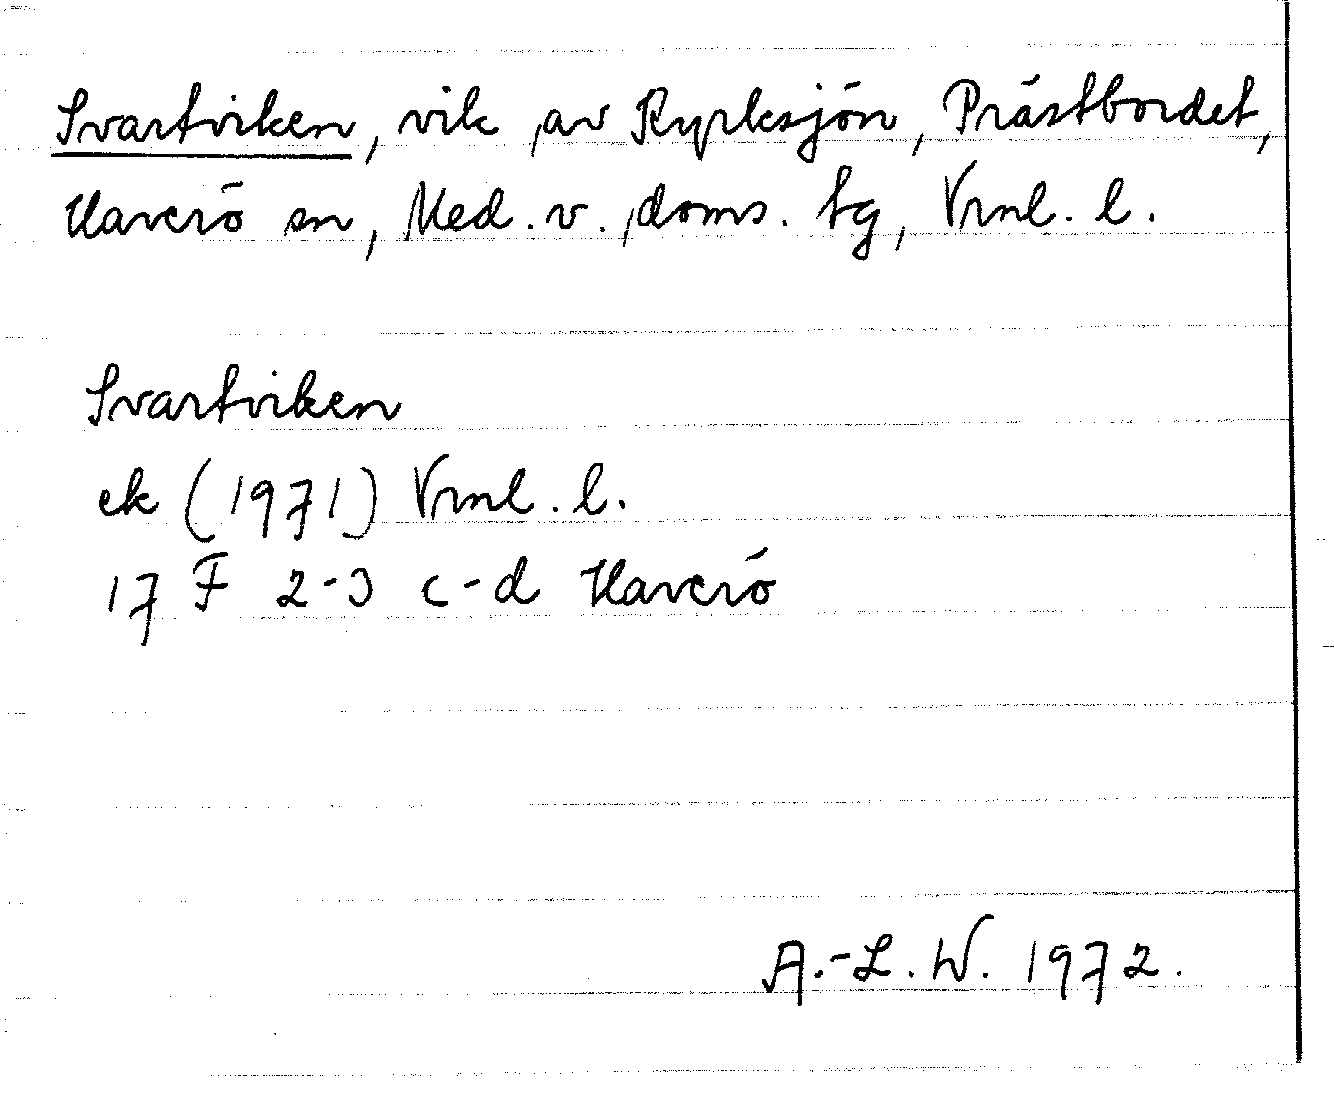 Svartviken, vik av Kyrksjön, Prästbordet,
Haverö sn, Med. v. doms. tg, Vrnl. l.
Svartviken
ek (1971) Vrnl. l.
17 F 2-3 c-d Haverö
A.-L. W. 1972.